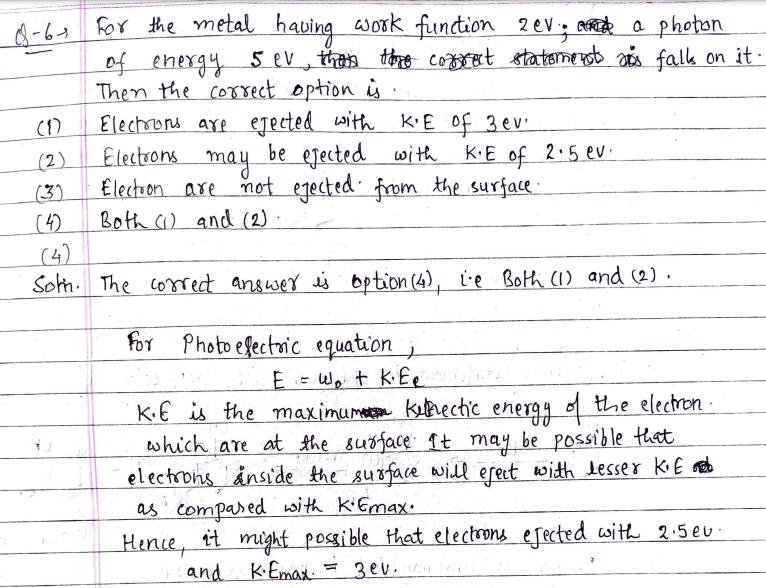 Q-6→ For the metal having work function 2 eV; a photon
of energy 5 eV, then the correct statement is falls on it.
Then the correct option is.
(1) Electrons are ejected with K.E of 3 eV.
(2) Electrons may be ejected with K.E of 2.5 eV.
(3) Electron are not ejected from the surface.
(4) Both (1) and (2).
(4)
Soln. The correct answer is option (4), i.e Both (1) and (2).
For Photoelectric equation,
E = W₀ + K.Ee
K.E is the maximum kinectic energy of the electron.
which are at the surface. It may be possible that
electrons inside the surface will eject with lesser K.E
as compared with K.Emax.
Hence, it might possible that electrons ejected with 2.5 eV.
and K.Emax = 3 eV.